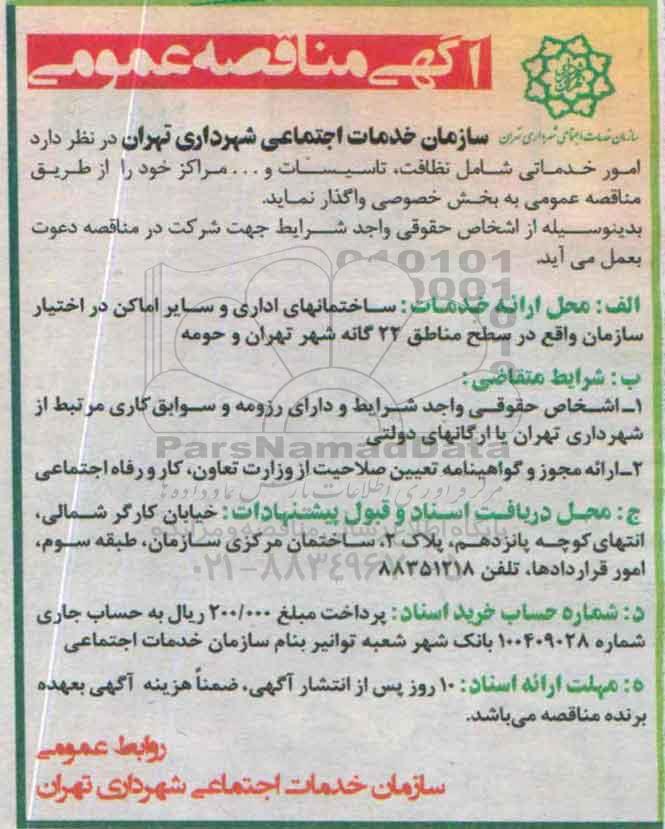 آگهی مناقصه عمومی
سازمان خدمات اجتماعی شهرداری تهران
سازمان خدمات اجتماعی شهرداری تهران در نظر دارد
امور خدماتی شامل نظافت، تاسیسات و ... مراکز خود را از طریق
مناقصه عمومی به بخش خصوصی واگذار نماید.
بدینوسیله از اشخاص حقوقی واجد شرایط جهت شرکت در مناقصه دعوت
بعمل می آید.
الف: محل ارائه خدمات: ساختمانهای اداری و سایر اماکن در اختیار
سازمان واقع در سطح مناطق ۲۲ گانه شهر تهران و حومه
ب: شرایط متقاضی:
۱ـ اشخاص حقوقی واجد شرایط و دارای رزومه و سوابق کاری مرتبط از
شهرداری تهران یا ارگانهای دولتی
ParsNamadData
۲ـ ارائه مجوز و گواهینامه تعیین صلاحیت از وزارت تعاون، کار و رفاه اجتماعی
مرکز فرآوری اطلاعات پارس نماد داده ها
ج: محل دریافت اسناد و قبول پیشنهادات: خیابان کارگر شمالی،
پایگاه اطلاع رسانی مناقصه و مزایده
انتهای کوچه پانزدهم، پلاک ۲، ساختمان مرکزی سازمان، طبقه سوم،
امور قراردادها، تلفن ۸۸۳۵۱۲۱۸
د: شماره حساب خرید اسناد: پرداخت مبلغ ۲۰۰/۰۰۰ ریال به حساب جاری
شماره ۱۰۰۴۰۹۰۲۸ بانک شهر شعبه توانیر بنام سازمان خدمات اجتماعی
ه: مهلت ارائه اسناد: ۱۰ روز پس از انتشار آگهی، ضمناً هزینه آگهی بعهده
برنده مناقصه می‌باشد.
روابط عمومی
سازمان خدمات اجتماعی شهرداری تهران